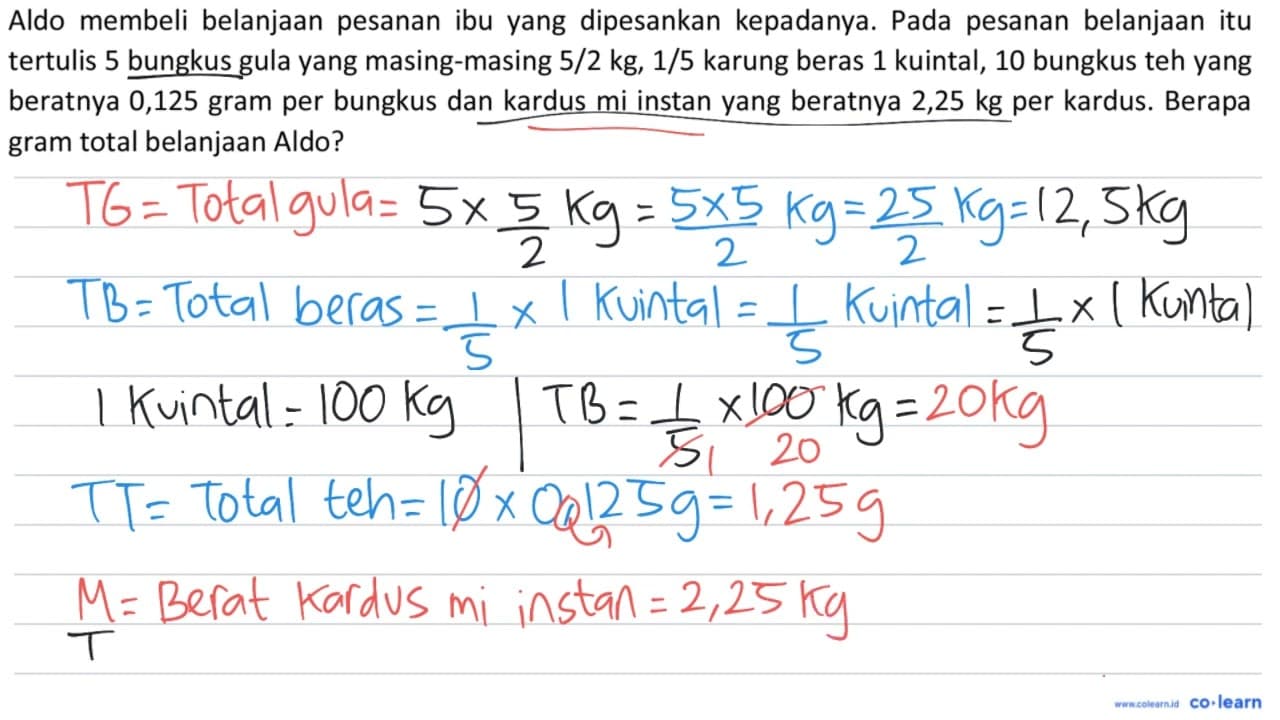 Aldo membeli belanjaan pesanan ibu yang dipesankan kepadanya. Pada pesanan belanjaan itu
tertulis 5 bungkus gula yang masing-masing 5/2 kg, 1/5 karung beras 1 kuintal, 10 bungkus teh yang
beratnya 0,125 gram per bungkus dan kardus mi instan yang beratnya 2,25 kg per kardus. Berapa
gram total belanjaan Aldo?
TG = Total gula = 5 × 5/2 Kg = 5×5/2 Kg = 25/2 Kg = 12,5 kg
TB = Total beras = 1/5 × 1 Kuintal = 1/5 Kuintal = 1/5 × 1 Kuintal
1 Kuintal = 100 Kg | TB = 1/5 × 100 kg = 20 kg
1 20
TT = Total teh = 10 × 0,125 g = 1,25 g
M = Berat Kardus mi instan = 2,25 Kg
T
www.colearn.id co·learn